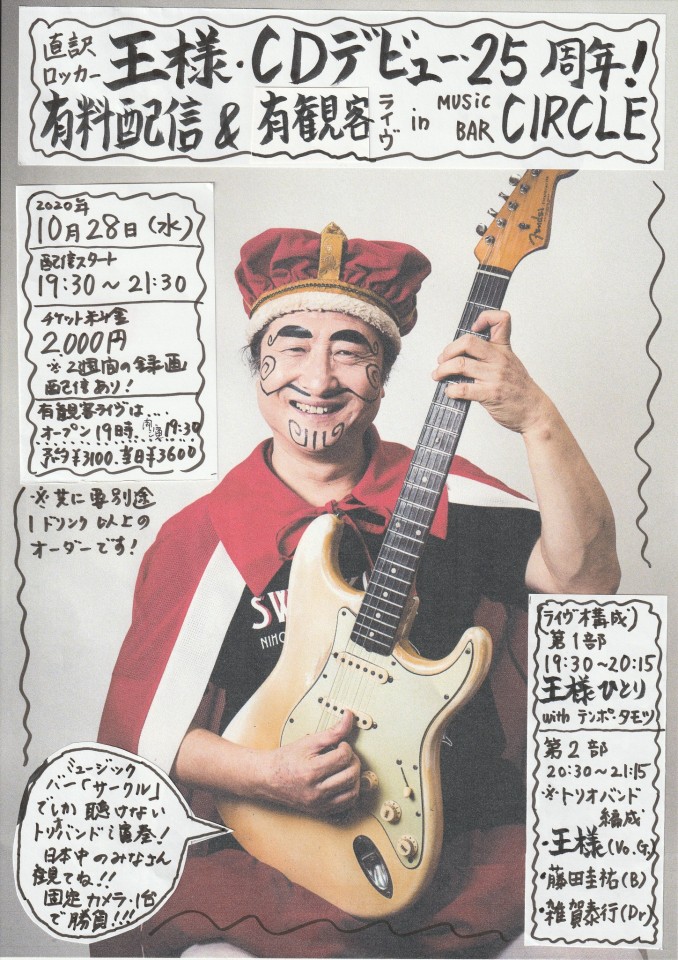 直訳
ロッカー 王様・CDデビュー25周年!
有料配信 & 有観客ライヴ in MUSIC BAR CIRCLE
2020年
10月28日(水)
配信スタート
19:30〜21:30
チケット料金
2,000円
※2週間の録画
配信あり!
有観客ライヴは....
オープン19時 開演19:30
予約¥3100、当日¥3600
※共に要別途
1ドリンク以上の
オーダーです!
Fender
SW
NIHO
(ライヴ構成)
第1部
19:30〜20:15
王様ひとり
with テンポ・タモツ
第2部
20:30〜21:15
※トリオバンド
編成
・王様(Vo.G)
・藤田圭祐(B)
・雑賀泰行(Dr)
ミュージック
バー「サークル」
でしか聴けない
トリオバンドも登場!
日本中のみなさん
観てね!!
固定カメラ1台
で勝負!!!